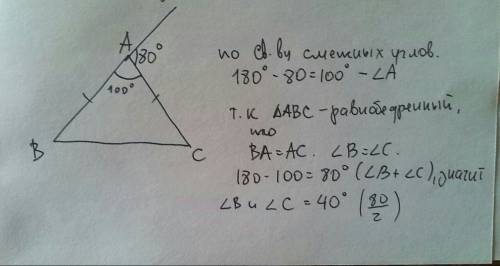 A
180°
100°
B
C
по св.ву смежных углов.
180° - 80 = 100° - ∠A
т.к ΔABC - равнобедренный,
то
BA = AC. ∠B = ∠C.
180 - 100 = 80° (∠B + ∠C), значит
∠B и ∠C = 40° (80/2)